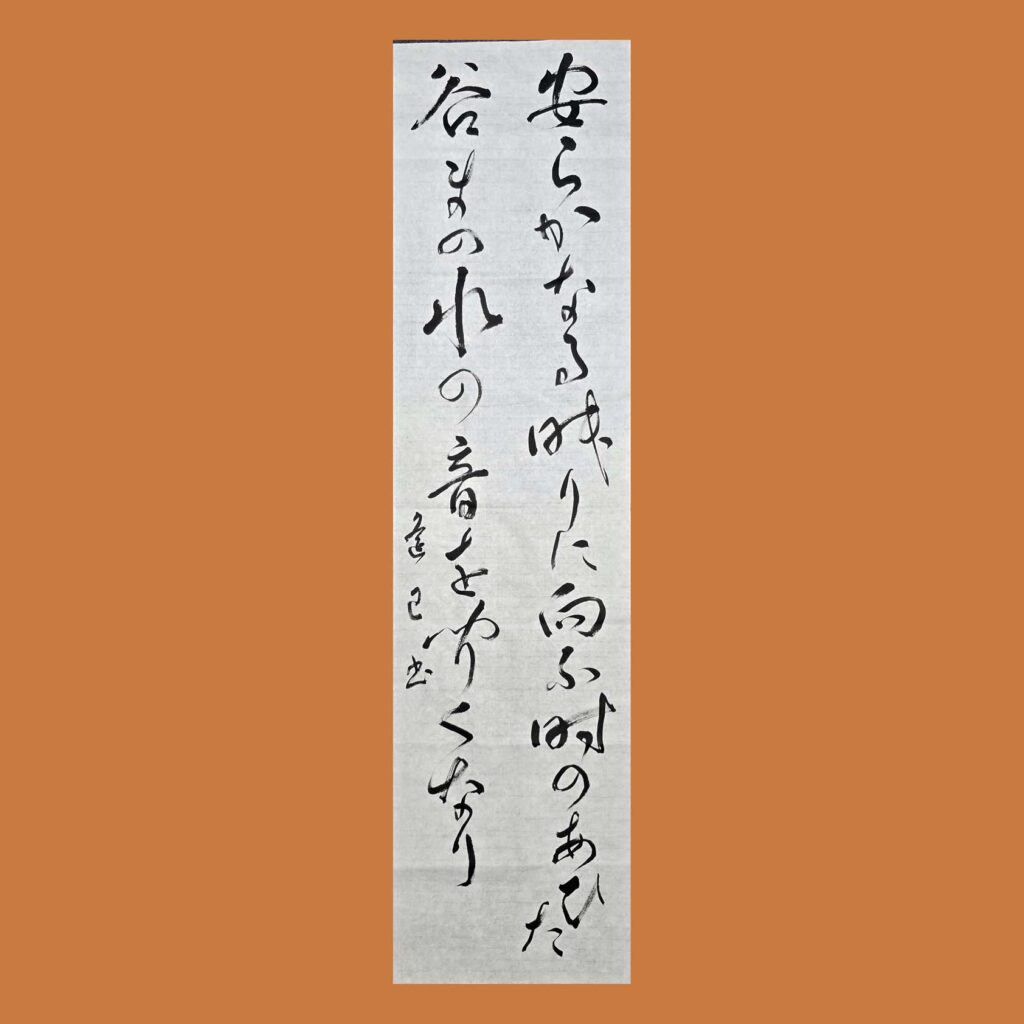 安らかなる眠りに向ふ時のあひた
谷まの水の音を聞くなり
書